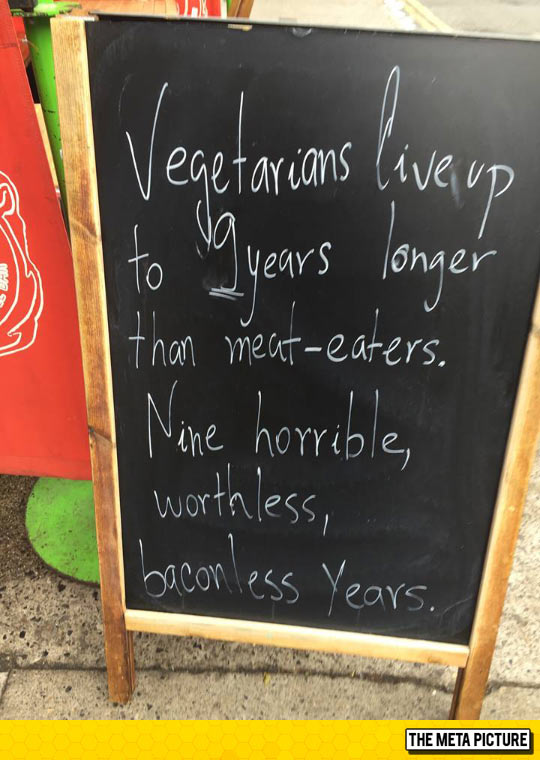 Vegetarians live up
to 9 years longer
than meat-eaters.
Nine horrible,
worthless,
baconless Years.
THE META PICTURE